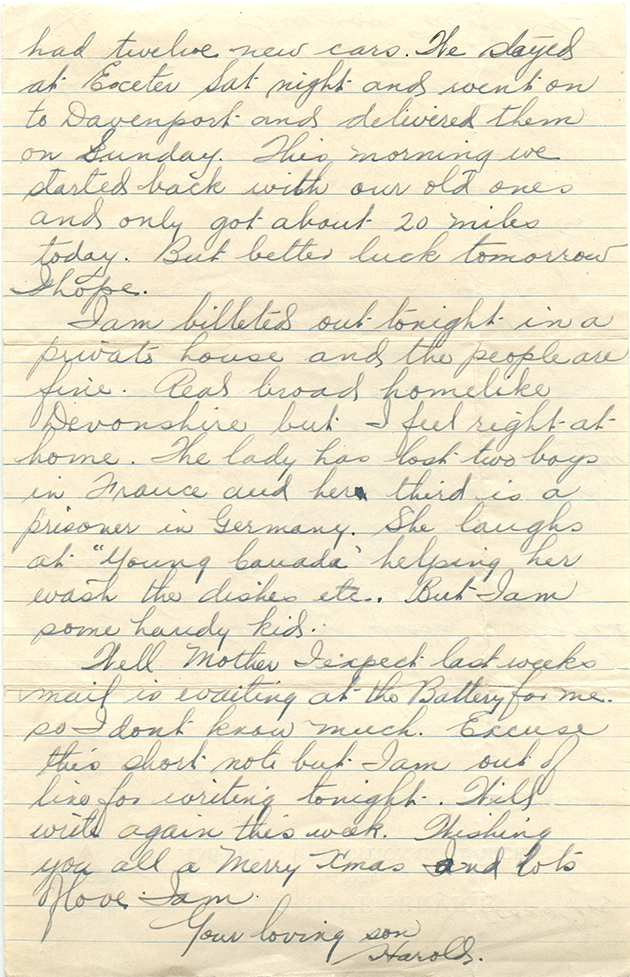 had twelve new cars. We stayed
at Exceter Sat night and went on
to Davenport and delivered them
on Sunday. This morning we
started back with our old ones
and only got about 20 miles
today. But better luck tomorrow
I hope.
I am billeted out tonight in a
private house and the people are
fine. Real broad homelike
Devonshire but I feel right at
home. The lady has lost two boys
in France and her third is a
prisoner in Germany. She laughs
at "Young Canada" helping her
wash the dishes etc.. But I am
some handy kid.
Well Mother I expect last weeks
mail is waiting at the Battery for me.
so I dont know much. Excuse
this short note but I am out of
line for writing tonight. Will
write again this week. Wishing
you all a Merry Xmas and lots
of love I am.
Your loving son
Harold.